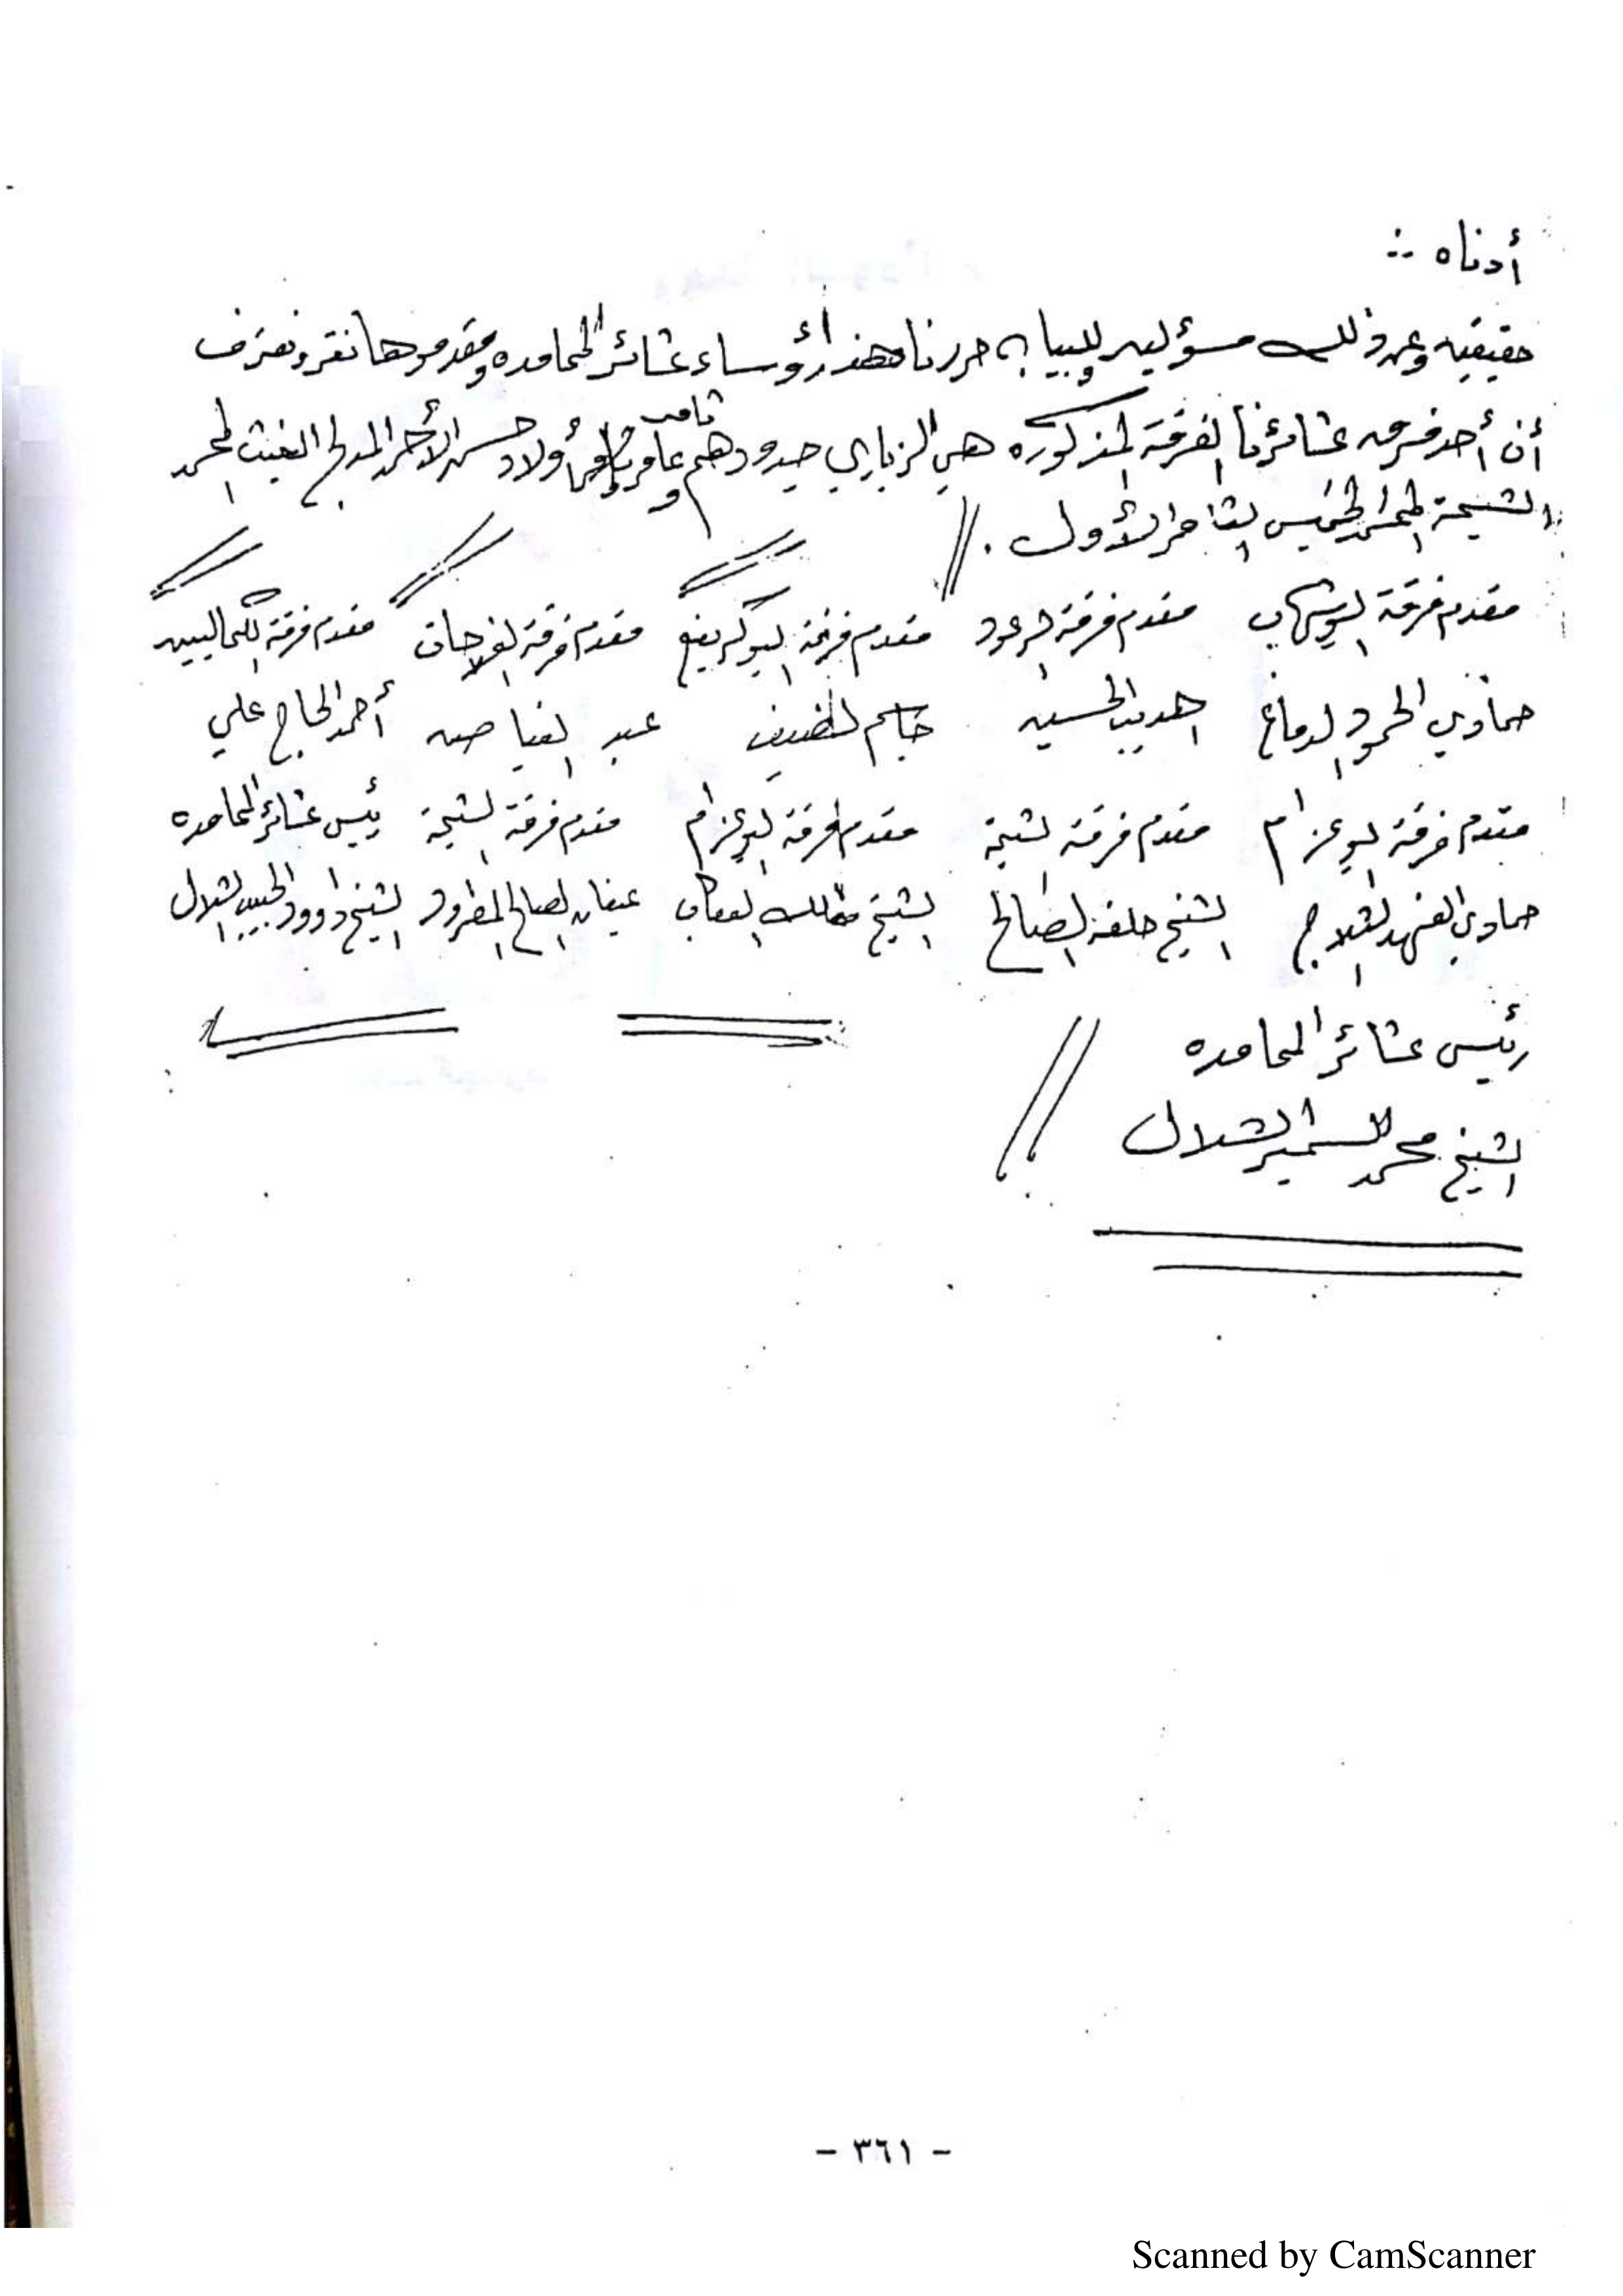 أدناه :-
حقيقيه وعن ذلك مسؤلين وللبيان حررنا هذا رؤساء عشائر المحامده ومقدموها نقر ونعترف
أن أحد فرق عشائرنا الفرقة المذكوره هي الزباري حيدو وهم عامر ثامر أولاد حسن الأحمد المدلج الغيث المحمد
الشيحة المحمد الخميس الثامر الأول .//
مقدم فرقة البوشهاب مقدم فرقة الرعود مقدم فرقة البوكريفع مقدم فرقة الفراحات مقدم فرقة الكماليين
حماوي الحمود الدماغ اهديب الحسين جاسم الضيف عبد الفياض أحمد الحاج علي
مقدم فرقة البوعزام مقدم فرقة الشيحة مقدم فرقة البوعزام مقدم فرقة الشيحة رئيس عشائر المحامده
حماوي الفهد الشلاج الشيخ خلف الصالح الشيخ العقاب عيفان الصالح المطرود الشيخ داوود الحبيب الشلال
رئيس عشائر المحامده
الشيخ محمد السمير الشلال
- ٣٦١ -
Scanned by CamScanner